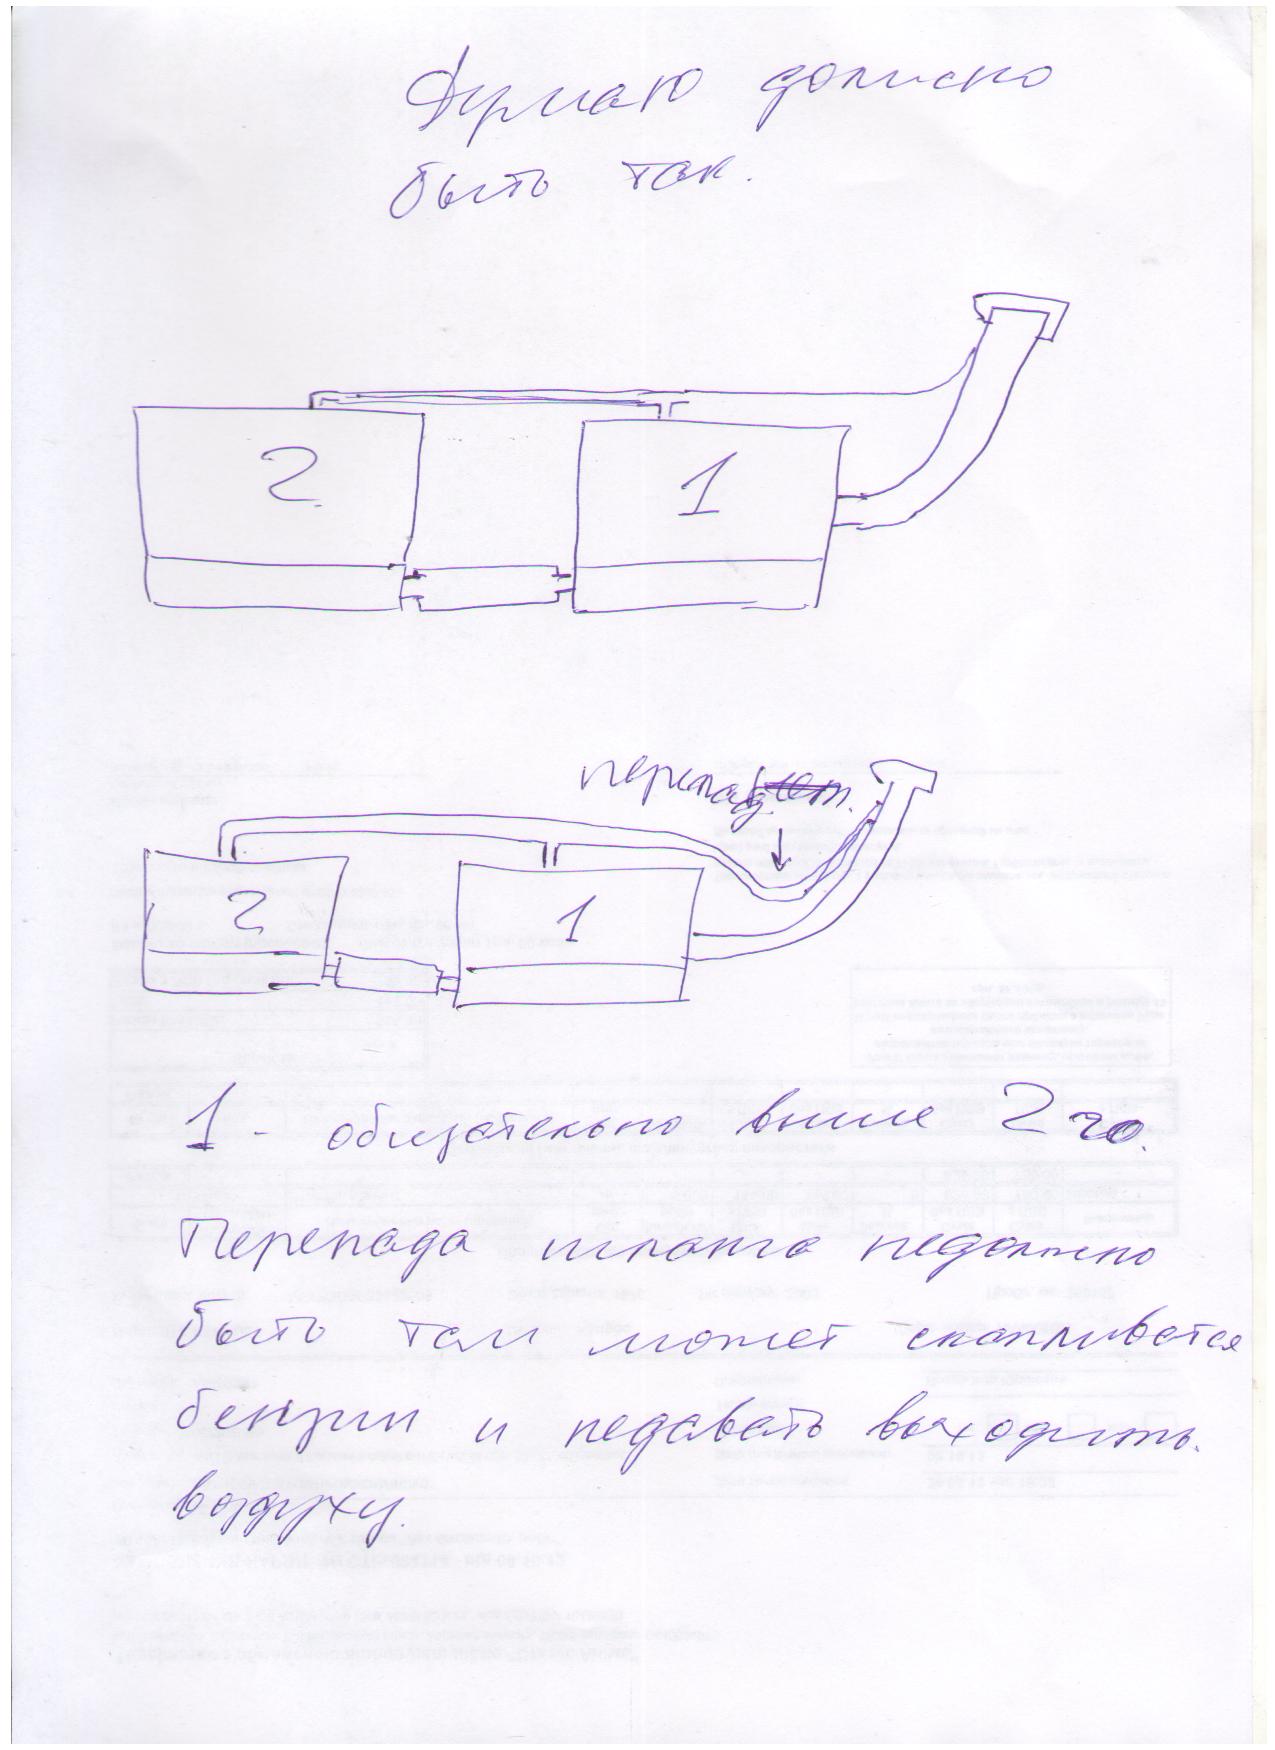 Думаю должно
быть так.
2
1
перепад.
2
1
1 - обязательно выше 2го.
Перепада шланга недолжно
быть там может скапливатся
бензин и недавать выходить.
воздуху.